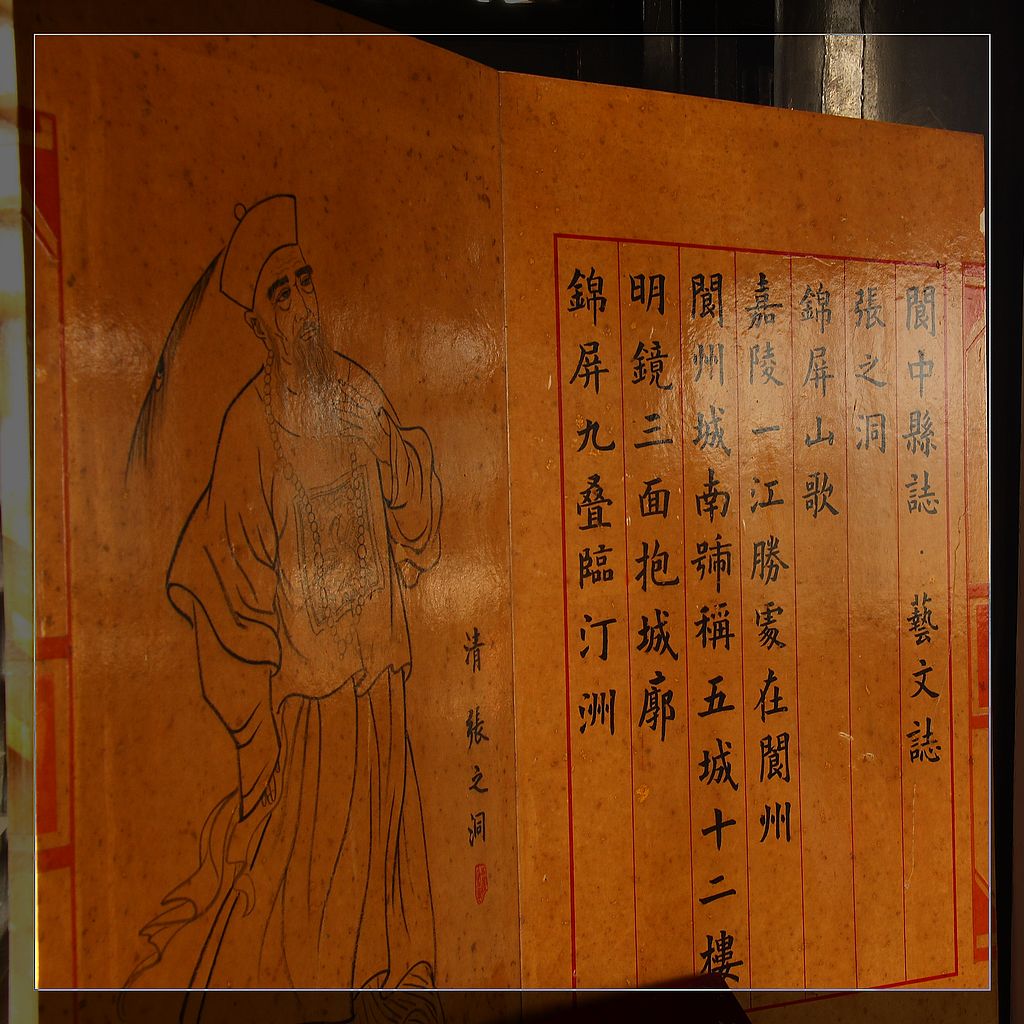 閬中縣誌·藝文誌
張之洞
錦屏山歌
嘉陵一江勝處在閬州
閬州城南號稱五城十二樓
明鏡三面抱城廓
錦屏九叠臨汀洲
清 張之洞